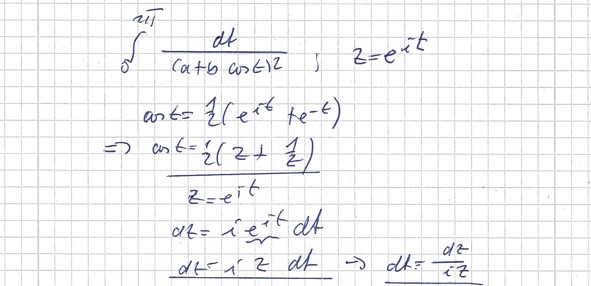 ∫₀^{2π} dt / (a+b cos t)² ; z = e^{it}
cos t = ½(e^{it} + e^{-t})
⇒ cos t = ½(z + 1/z)
z = e^{it}
dz = i e^{it} dt
dz = i z dt → dt = dz/iz